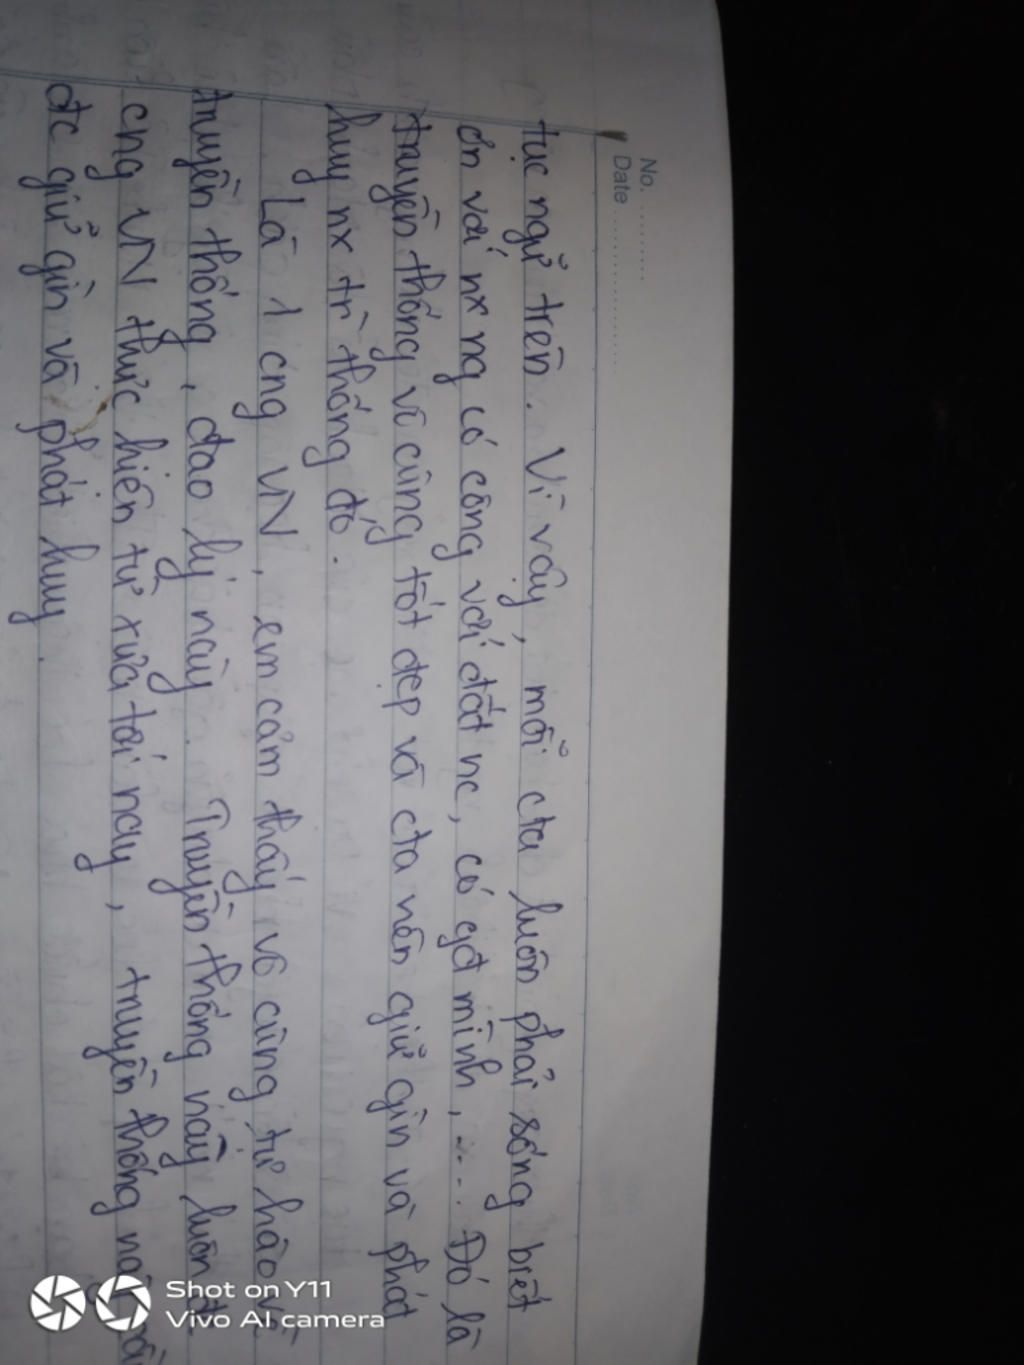 No. ............
Date ........................
tục ngữ trên. Vì vậy, mỗi cta luôn phải sống biết
ơn với nx ng có công với đất nc, có gđ mình, .... Đó là
truyền thống vô cùng tốt đẹp và cta nên giữ gìn và phát
huy nx tr` thống đó.
Là 1 cng VN, em cảm thấy vô cùng tự hào về
truyền thống, đạo lý này. Truyền thống này luôn đc
cng VN thực hiện từ xưa tới nay, truyền thống
đc giữ gìn và phát huy.
Shot on Y11
Vivo AI camera